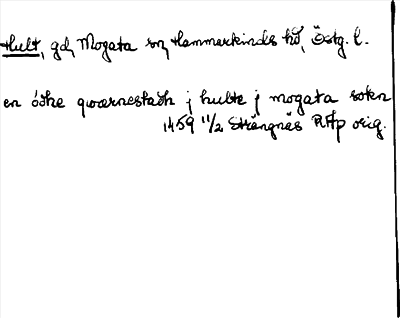 Hult, gd, Mogata sn, Hammarkinds hd, Östg. l.
en ödhe qwærnestadh j hulte j mogata sokn
1459 11/2 Strängnäs RAp orig.